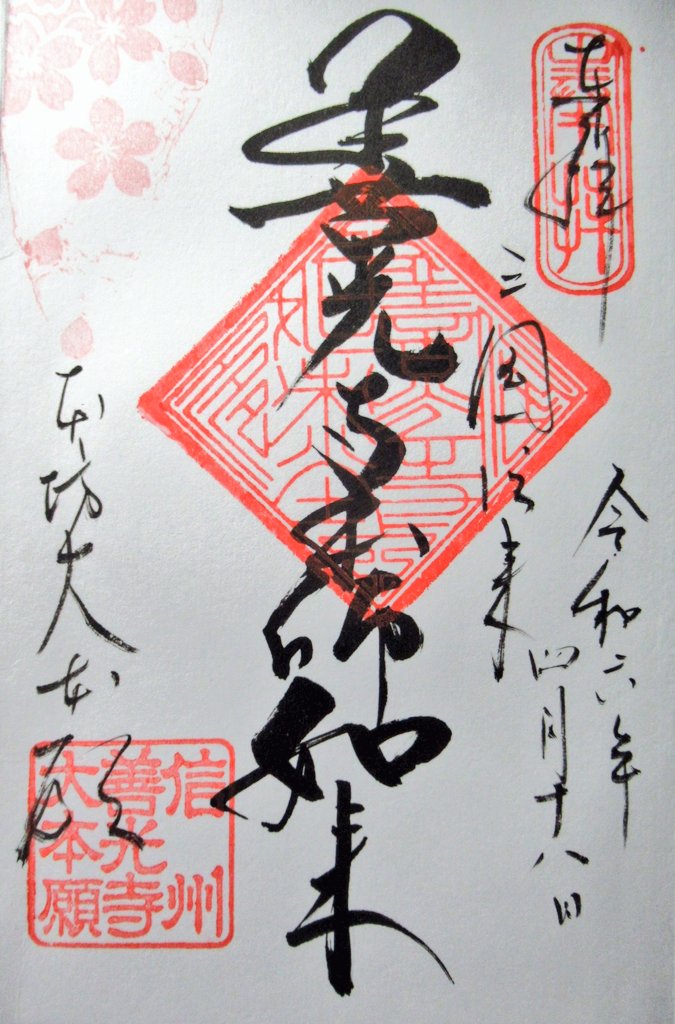 奉拝
令和六年
四月十八日
三国伝来
善光寺
如来
本坊大本願
奉拝
信州
善光寺
大本願